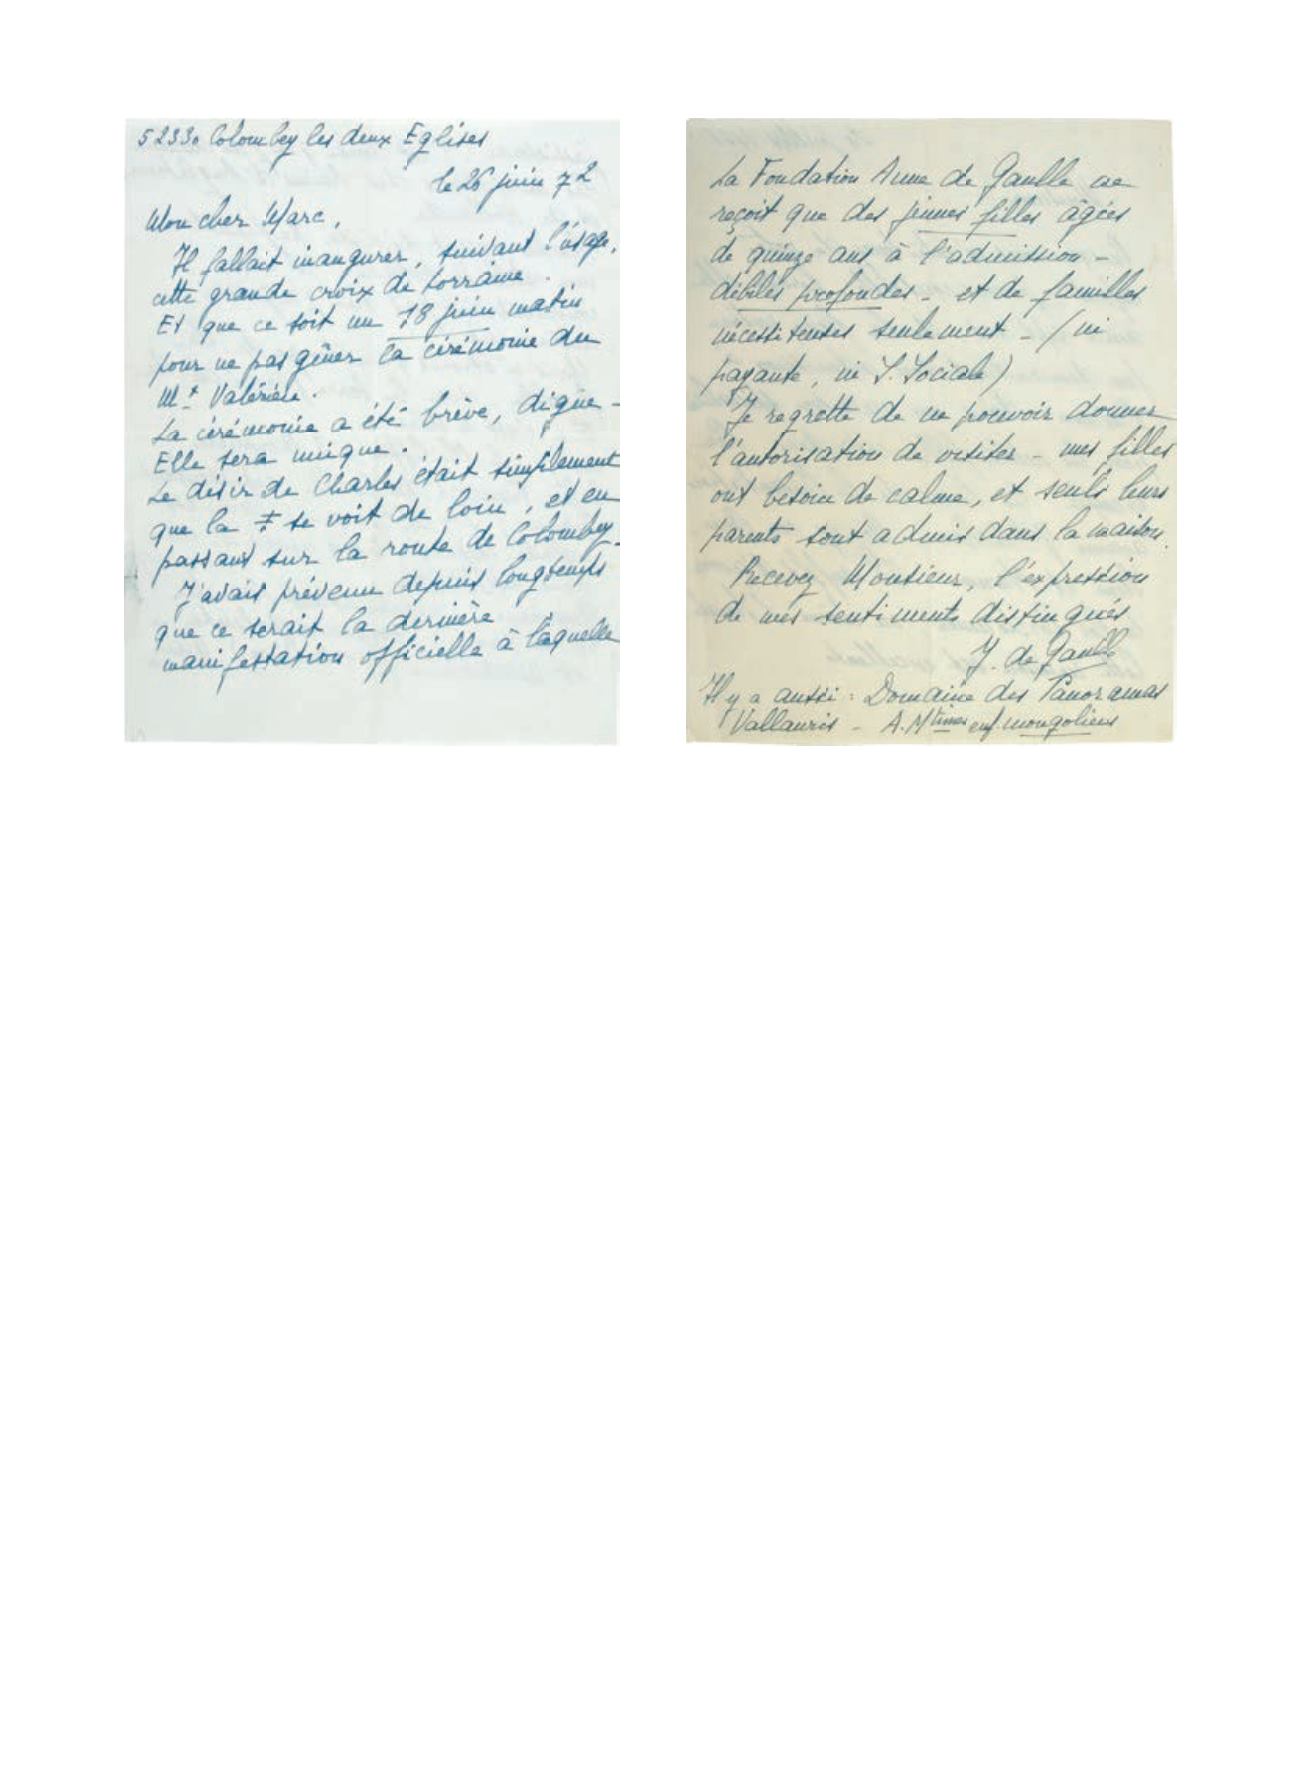 52330 Colombey les deux Eglises
le 26 juin 72
Mon cher Marc,
Il fallait inaugurer, suivant l'usage,
cette grande croix de Lorraine.
Et que ce soit un 18 juin matin
pour ne pas gêner la cérémonie du
Mt Valérien.
La cérémonie a été brève, digne -
Elle sera unique.
Le désir de Charles était simplement
que la ‡ se voit de loin, et en
passant sur la route de Colombey.
J'avais prévenu depuis longtemps
que ce serait la dernière
manifestation officielle à laquelle
La Fondation Anne de Gaulle ne
reçoit que des jeunes filles âgées
de quinze ans à l'admission -
débiles profondes - et de familles
nécessiteuses seulement - (ni
payante, ni S. Sociale)
Je regrette de ne pouvoir donner
l'autorisation de visiter - mes filles
ont besoin de calme, et seuls leurs
parents sont admis dans la maison.
Recevez Monsieur, l'expression
de mes sentiments distingués
Y. de Gaulle
Il y a aussi : Domaine des Panoramas
Vallauris - A. Mtimes enf. mongoliens